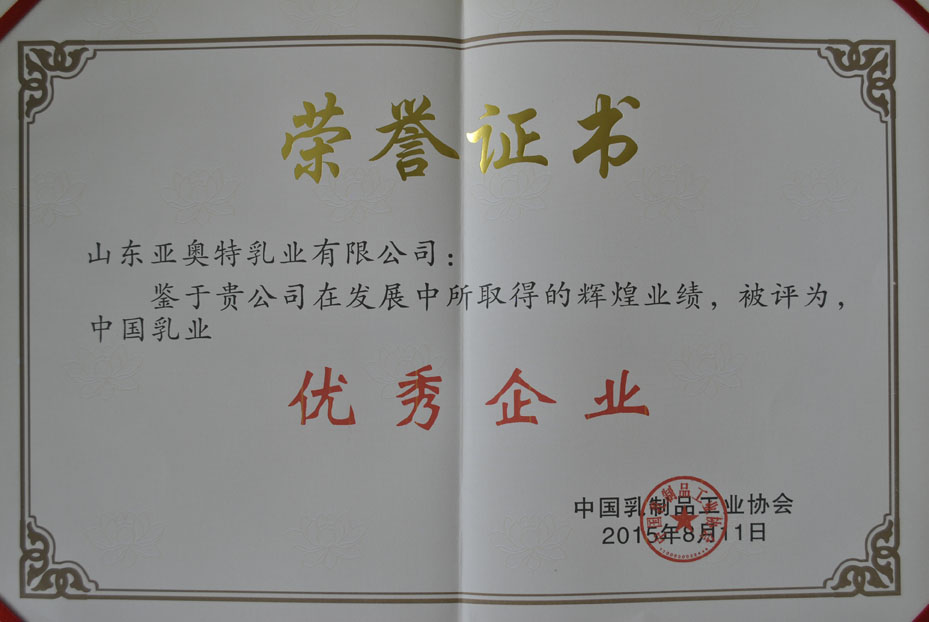 荣誉证书
山东亚奥特乳业有限公司：
鉴于贵公司在发展中所取得的辉煌业绩，被评为，
中国乳业
优秀企业
中国乳制品工业协会
2015年8月11日